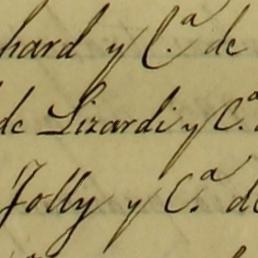 hard y C.ª de
de Lizardi y C.ª
Jolly y C.ª de